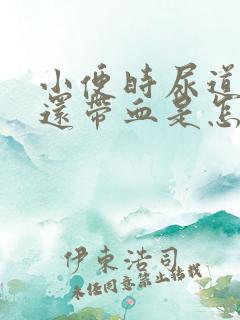 小便时尿道
還帶血是怎
伊東浩司
未经同意禁止转载